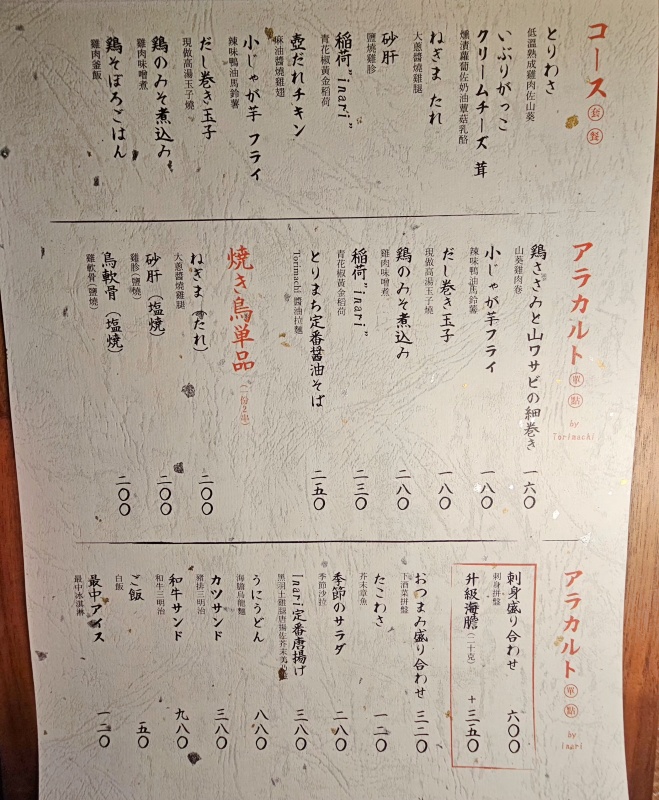 コース 套餐
とりわさ
低溫熟成雞肉佐山葵
いぶりがっこ
クリームチーズ 茸
燻漬蘿蔔佐奶油蕈菇乳酪
ねぎま たれ
大蔥醬燒雞腿
砂肝
鹽燒雞胗
稲荷"inari"
青花椒黃金稻荷
壺だれチキン
麻油醬燒雞翅
小じゃが芋 フライ
辣味鴨油馬鈴薯
だし巻き玉子
現做高湯玉子燒
鶏のみそ煮込み
雞肉味噌煮
鶏そぼろごはん
雞肉釜飯
アラカルト 單點 by Torimachi
鶏ささみと山ワサビの細巻き 一六〇
山葵雞肉卷
小じゃが芋フライ 一八〇
辣味鴨油馬鈴薯
だし巻き玉子 一八〇
現做高湯玉子燒
鶏のみそ煮込み 二八〇
雞肉味噌煮
稲荷"inari" 二三〇
青花椒黃金稻荷
とりまち定番醤油そば 二五〇
Torimachi 醬油拉麵
焼き鳥単品 (一份2串)
ねぎま (たれ) 二〇〇
大蔥醬燒雞腿
砂肝 (塩焼) 二〇〇
雞胗(鹽燒)
鳥軟骨 (塩焼) 二〇〇
雞軟骨(鹽燒)
アラカルト 單點 by inari
刺身盛り合わせ 六〇〇
刺身拼盤
升級海膽 (二十克) +三五〇
おつまみ盛り合わせ 三二〇
下酒菜拼盤
たこわさ 一二〇
芥末章魚
季節のサラダ 二八〇
季節沙拉
Inari定番唐揚げ 三八〇
黑羽土雞腿唐揚佐芥末美乃滋
うにうどん 八八〇
海膽烏龍麵
カツサンド 三八〇
豬排三明治
和牛サンド 九八〇
和牛三明治
ご飯 五〇
白飯
最中アイス 一二〇
最中冰淇淋